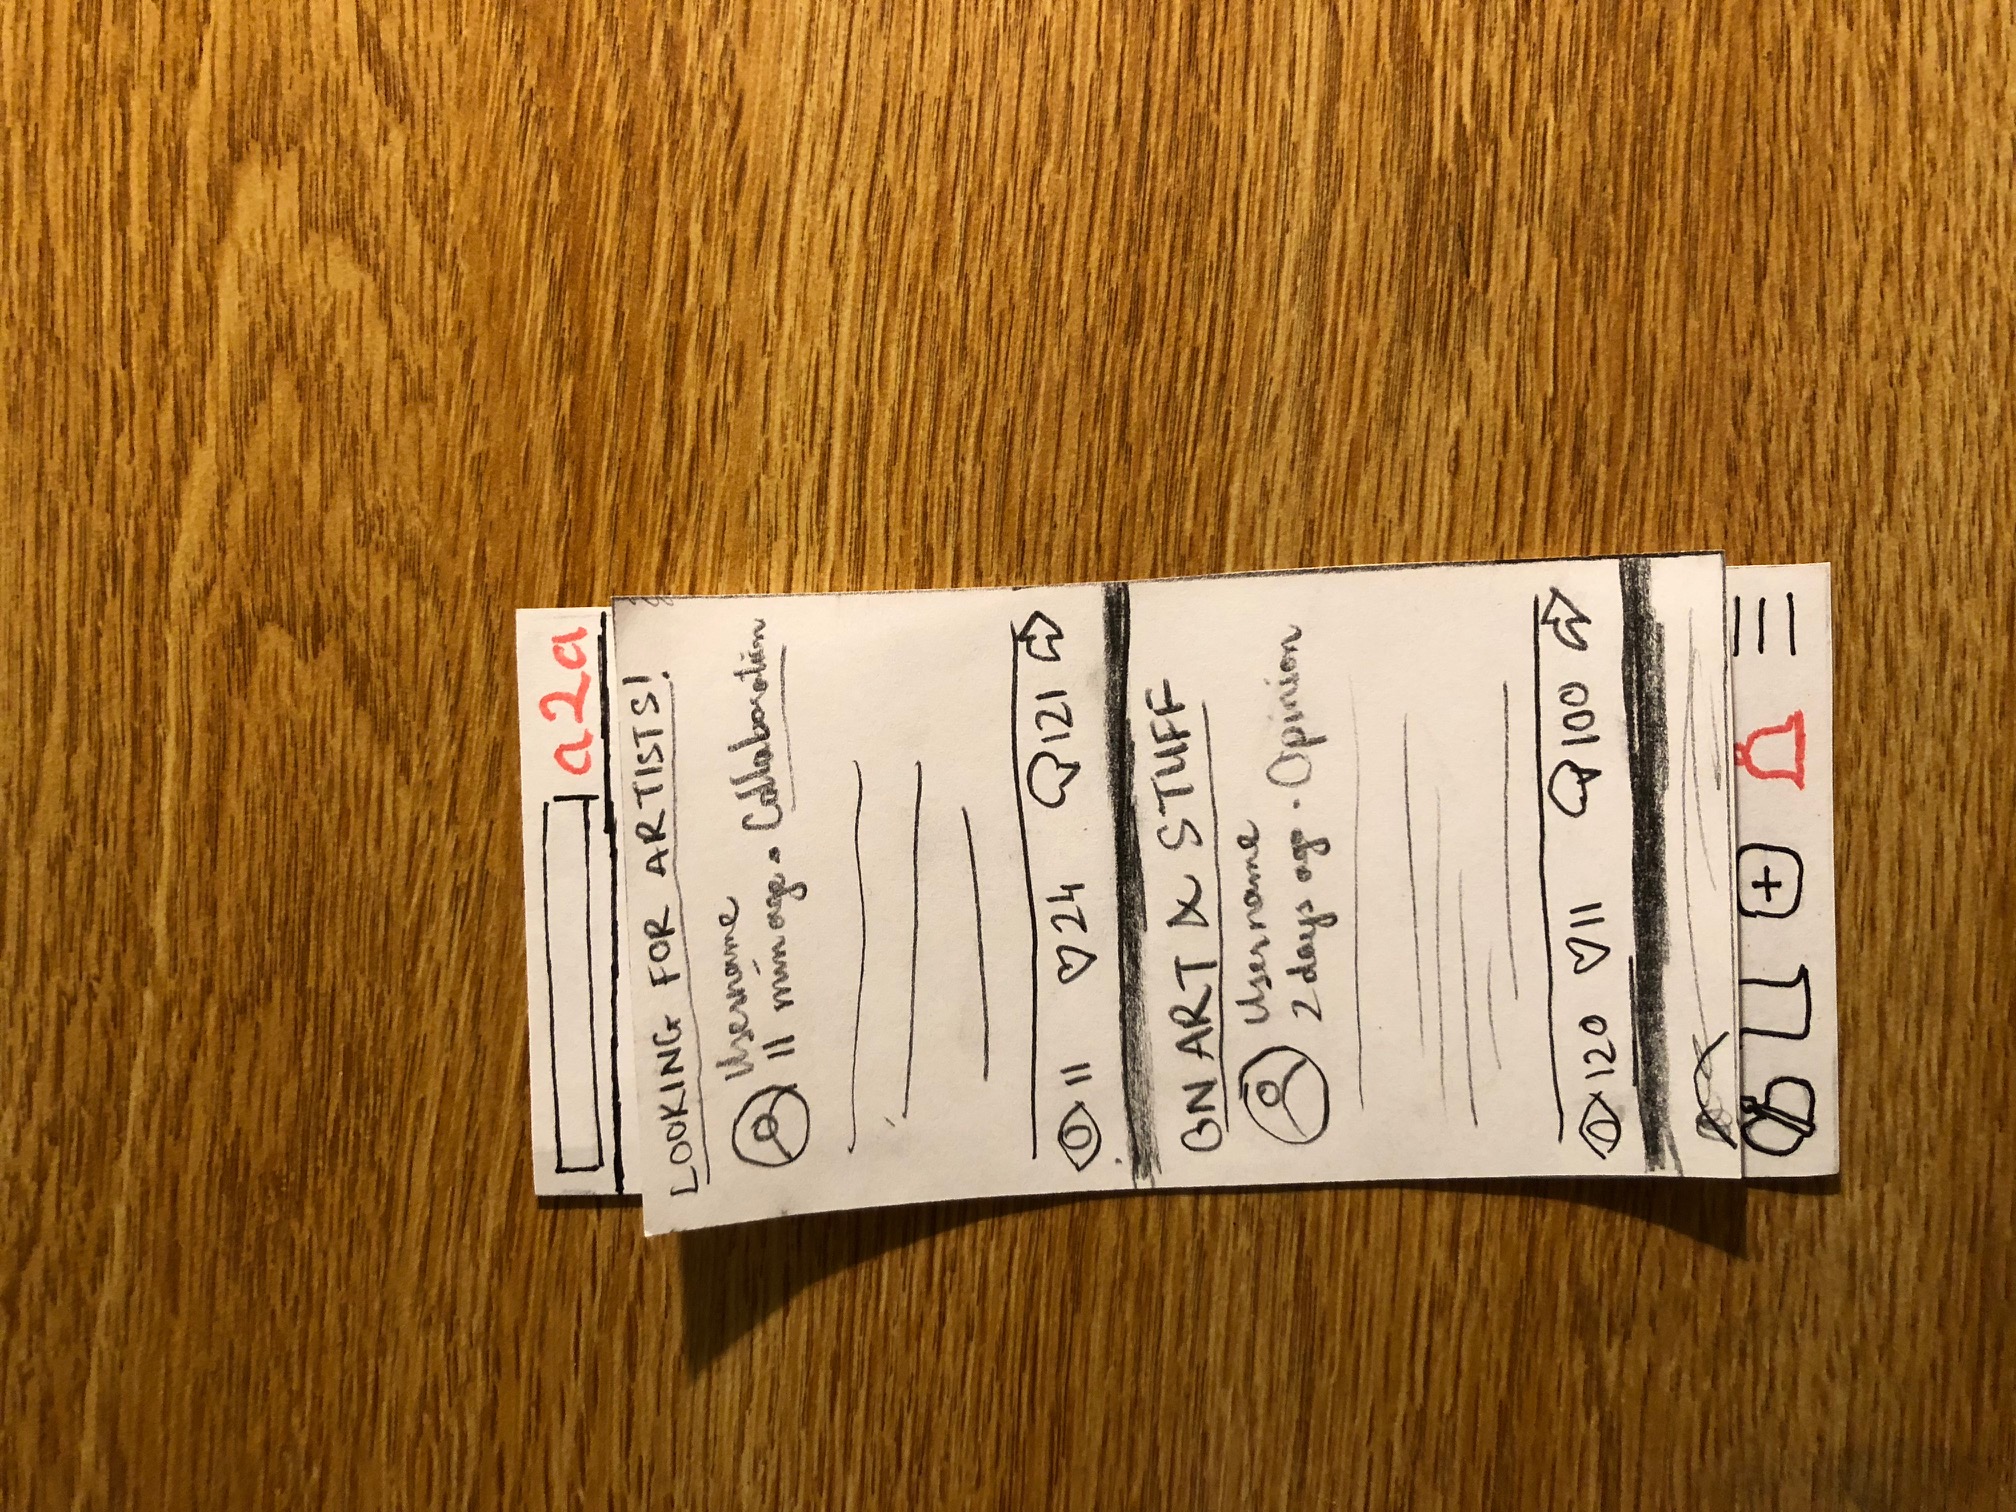 a2a
LOOKING FOR ARTISTS!
Username
11 min ago • Collaboration
11 24 121
ON ART & STUFF
Username
2 days ago • Opinion
120 11 100